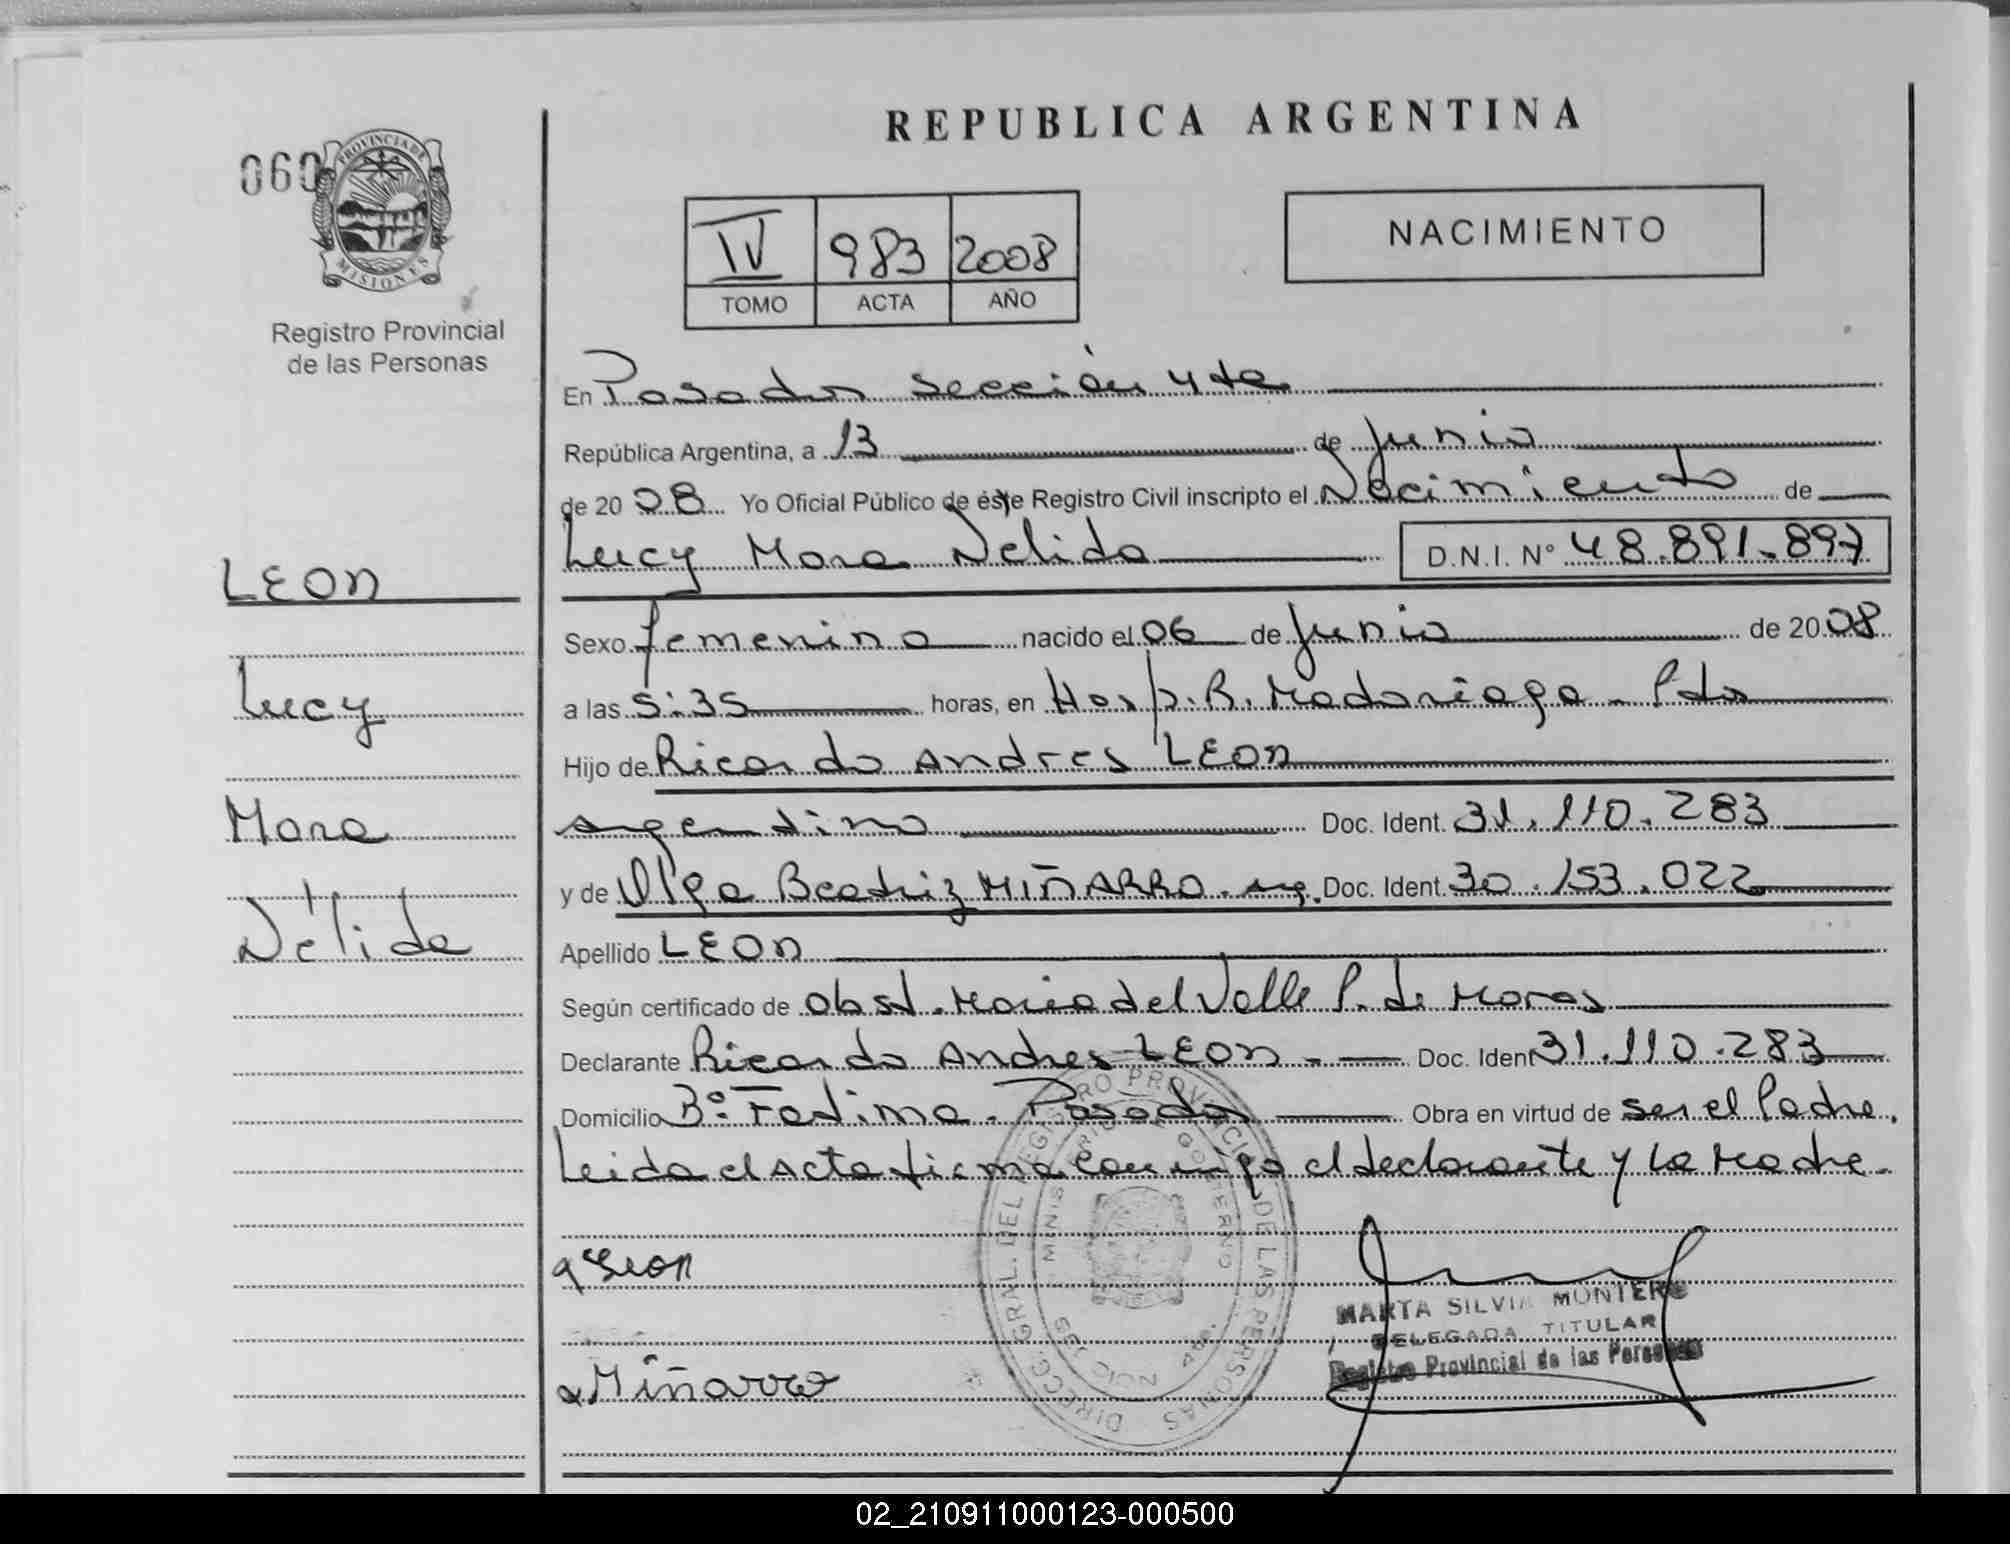 REPUBLICA ARGENTINA
060
PROVINCIA DE
MISIONES
Registro Provincial
de las Personas
IV 983 2008
TOMO ACTA AÑO
NACIMIENTO
LEON
Lucy
Mara
Nélida
En Posadas sección 4ta
República Argentina, a 13 de Junio
de 2008 Yo Oficial Público de éste Registro Civil inscripto el Nacimiento de
Lucy Mara Nelida D.N.I. N° 48.891.897
Sexo femenino nacido el 06 de Junio de 2008
a las 5:35 horas, en Hosp. R. Madariaga - Pdas
Hijo de Ricardo Andres LEON
argentino Doc. Ident. 31.110.283
y de Olga Beatriz MIÑARRO. arg. Doc. Ident. 30.153.022
Apellido LEON
Según certificado de Obst. Maria del Valle P. de Moras
Declarante Ricardo Andres LEON - Doc. Ident 31.110.283
Domicilio Bº Fatima - Posadas Obra en virtud de ser el Padre,
Leida el Acta firma conmigo el declarante y la Madre.
DIRECC. GRAL. DEL REGISTRO PROVINCIAL DE LAS PERSONAS
MINISTERIO DE GOBIERNO
Leon
MARTA SILVIA MONTERO
DELEGADA TITULAR
Registro Provincial de las Personas
Miñarro
02_210911000123-000500